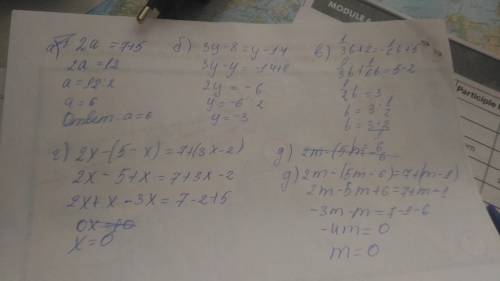 а) 2a = 7+5
2a = 12
a = 12:2
a = 6
Ответ: a = 6
б) 3y - 8 = y - 14
3y - y = -14+8
2y = -6
y = -6:2
y = -3
в)
2b = 3
г) 2x - (5 - x) = 7 + (3x - 2)
2x - 5 + x = 7 + 3x - 2
2x + x - 3x = 7 - 2 + 5
0x = 10
x = 0
д) 2m - (5m - 6) = 7 + (m - 1)
2m - 5m + 6 = 7 + m - 1
-3m - m = 7 - 1 - 6
-4m = 0
m = 0
MODULE
Participle